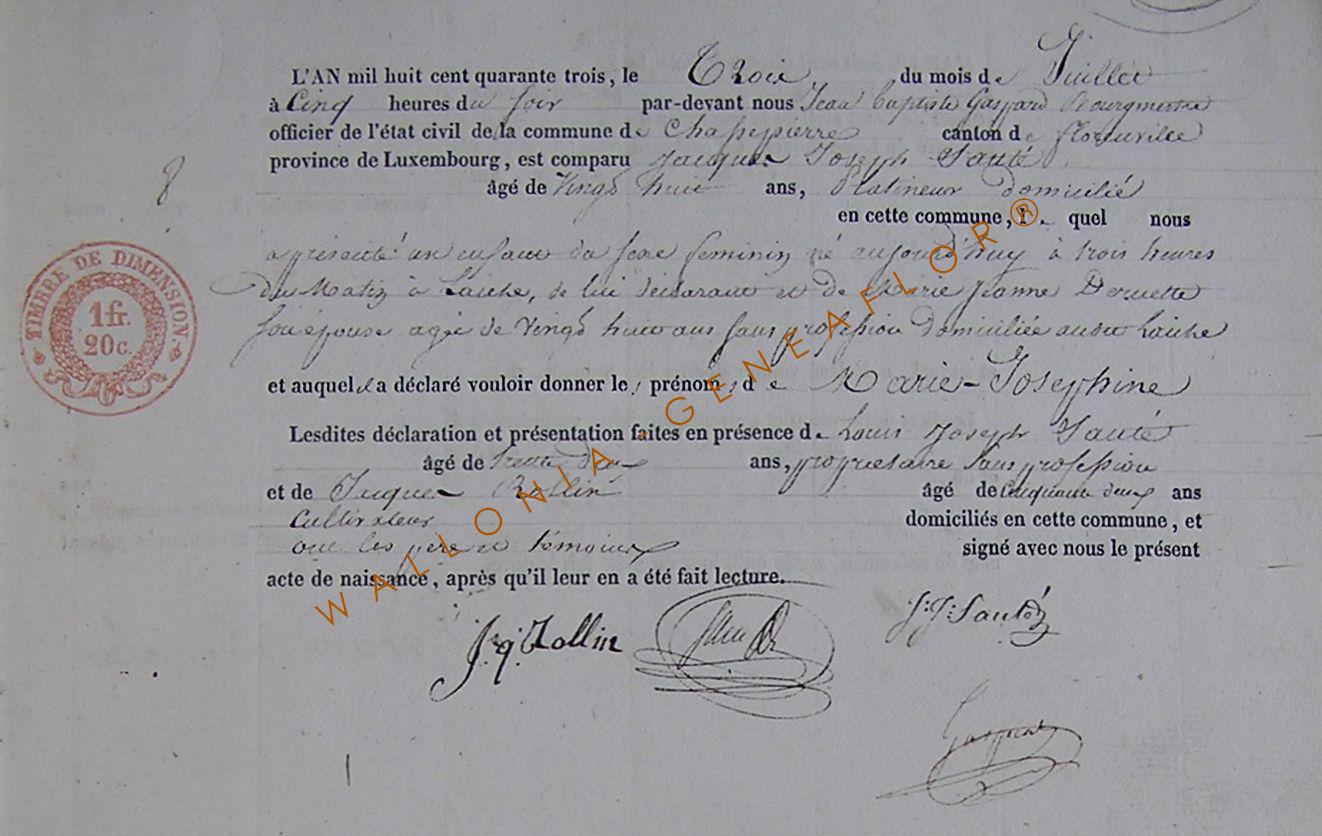 L'AN mil huit cent quarante trois, le Trois du mois de Juillet
à Cinq heures du soir par-devant nous Jean baptiste Gaspard Bourgmestre
officier de l'état civil de la commune de Chassepierre canton de florenville
province de Luxembourg, est comparu Jacques Joseph Santé
âgé de Vingt huit ans, Platineur domicilié
en cette commune, le quel nous
a présenté un enfant du sexe feminin né aujourd'huy à trois heures
du Matin à Laiche, de lui déclarant et de Marie Jeanne
son épouse agée de Vingt huit ans sans profession domiciliée audit Laiche
et auquel il a déclaré vouloir donner les prénoms de Marie-Josephine
Lesdites déclaration et présentation faites en présence de Louis Joseph Santé
âgé de trente deux ans, propriétaire sans profession
et de Jacques Rollin âgé de Cinquante deux ans
Cultivateur domiciliés en cette commune, et
ont les père et témoins signé avec nous le présent
acte de naissance, après qu'il leur en a été fait lecture.
J: J: Santé
Gaspard
TIMBRE DE DIMENSION
1 fr.
20 c.
WALLONIA - GENEAFLOR®